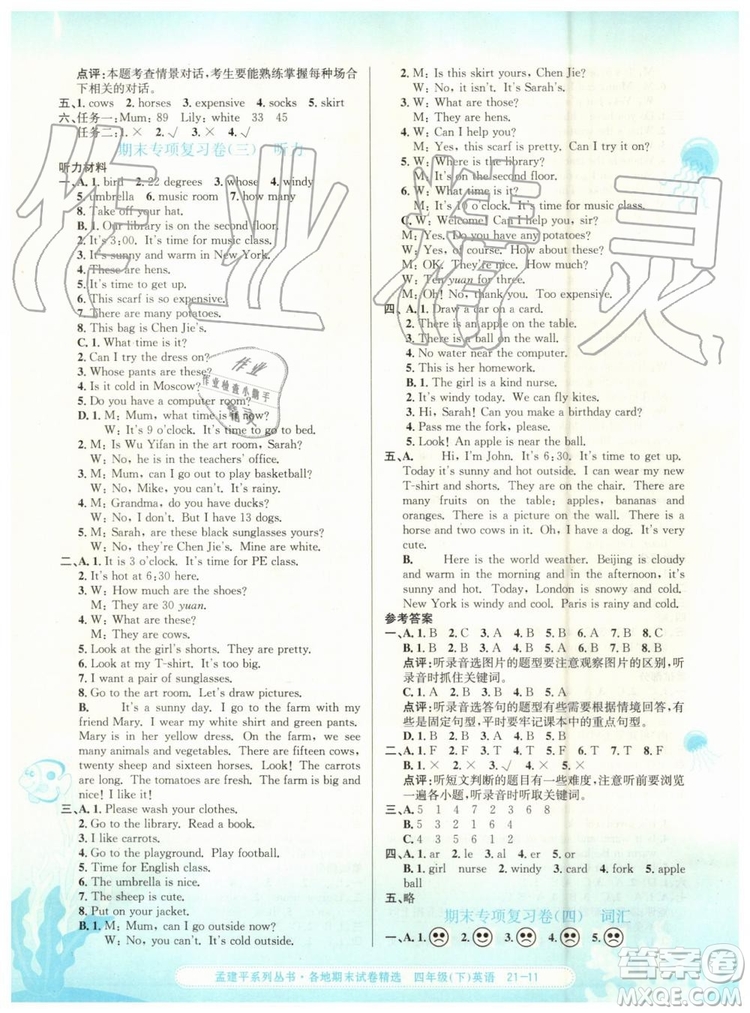 点评:本题考查情景对话,考生要能熟练掌握每种场合
下相关的对话。
五、1. cows  2. horses  3. expensive  4. socks  5. skirt
六、任务一:Mum: 89  Lily: white  33  45
任务二:1. ×  2. √
期末专项复习卷(三)  听力
听力材料
一、A. 1. bird  2. 22 degrees  3. whose  4. windy
5. umbrella  6. music room  7. how many
8. Take off your hat.
B. 1. Our library is on the second floor.
2. It's 3:00. It's time for music class.
3. It's sunny and warm in New York.
4. These are hens.
5. It's time to get up.
6. This scarf is so expensive.
7. There are many potatoes.
8. This bag is Chen Jie's.
C. 1. What time is it?
2. Can I try the dress on?
3. Whose pants are these?
4. Is it cold in Moscow?
5. Do you have a computer room?
D. 1. M: Mum, what time is it now?
W: It's 9 o'clock. It's time to go to bed.
2. M: Is Wu Yifan in the art room, Sarah?
W: No, he is in the teachers' office.
3. M: Mum, can I go out to play basketball?
W: No, Mike, you can't. It's rainy.
4. M: Grandma, do you have ducks?
W: No, I don't. But I have 13 dogs.
5. M: Sarah, are these black sunglasses yours?
W: No, they're Chen Jie's. Mine are white.
二、A. 1. It is 3 o'clock. It's time for PE class.
2. It's hot at 6:30 in the evening.
3. W: How much are the shoes?
M: They are 30 yuan.
4. W: What are these?
M: They are cows.
5. Look at the girl's shorts. They're nice.
6. Look at my T-shirt. It's too big.
7. I want a pair of sunglasses.
8. Go to the art room. Let's draw pictures.
B. It's a sunny day. I go to the farm with my
friend Mary. I wear my white shirt and green pants.
Mary is in her yellow dress. On the farm, we see
many animals and vegetables. There are fifteen cows,
twenty sheep and sixteen horses. Look! The carrots
are long. The tomatoes are fresh. The farm is big and
nice. I like it!
三、A. 1. Please wash your clothes.
2. Go to the library. Read a book.
3. I like carrots.
4. Go to the playground. Play football.
5. Time for English class.
6. The umbrella is nice.
7. The sheep is cute.
8. Put on your jacket.
B. 1. M: Mum, can I go outside now?
W: No, you can't. It's cold outside.
2. M: Is this skirt yours, Chen Jie?
W: No, it isn't. It's Sarah's.
3. W: What are these?
M: They are hens.
4. W: Can I help you?
M: Yes, this skirt is too small for me.
5. W: Where is the library?
M: It's on the second floor.
6. W: What time is it?
M: It's 10 o'clock. It's time for music class.
C. W: Welcome! Can I help you, sir?
M: Yes. Do you have any potatoes?
W: Yes, of course. How about these?
M: OK. They're nice. How much are they?
W: Ten yuan for three.
M: Oh! How cheap! Thank you.
四、A. 1. Draw a car on a card.
2. There is a bird in the third picture.
3. There is a ball on the wall.
4. No water near the computer.
5. This is her homework.
B. 1. The girl is a kind nurse.
2. It's windy today. We can fly kites.
3. Hi, Sarah! Can you make a birthday card?
4. Pass me the fork, please.
5. Look! An apple is near the ball.
五、A. Hi, I'm John. It's 6:30. It's time to get up.
Today it's sunny and hot outside. I can wear my new
T-shirt and shorts. They are nice. There are
many fruits on the table: apples, bananas and
oranges. There is a picture on the wall. There is a
horse and two cows in it. Oh, I have a dog. It's very
cute.
B. Here is the world weather. Beijing is cloudy
and warm in the morning and in the afternoon, it's
hot and sunny. Today, London is rainy and cool.
New York is windy and cold. Paris is rainy and cold.
参考答案
一、A. 1. B  2. C  3. A  4. B  5. B  6. C  7. A  8. B
B. 1. B  2. A  3. B  4. A  5. A  6. B  7. A  8. B
点评:听录音选图片的题型要注意观察图片的区别,听
录音时抓住关键词。
C. 1. A  2. B  3. A  4. B  5. A
点评:听录音选答句的题型有些需要根据情境回答,有
些是固定句型,平时要牢记课本中的重点句型。
D. 1. B  2. C  3. A  4. A  5. B
二、A. 1. F  2. F  3. T  4. F  5. T  6. T  7. F  8. T
B. 1. F  2. T  3. F  4. F  5. T
点评:听短文判断的题目有一些难度,注意听前要浏览
一遍各小题,听录音时抓住关键词。
三、A. 5 1 4 7 2 3 6 8
B. 5 3 2 1 6 4
C. 5 2 3 1 4
四、A. 1. ar  2. ir  3. al  4. er  5. or
B. 1. girl nurse  2. windy  3. card  4. fork  5. apple
ball
五、略
期末专项复习卷(四)  词汇
一、A. 1. 2. 3. 4. 5.
孟建平系列丛书·各地期末试卷精选  四年级(下)英语  21-11
作业精灵
作业
作业检查小帮手
精灵
答案圈
MXQE.COM